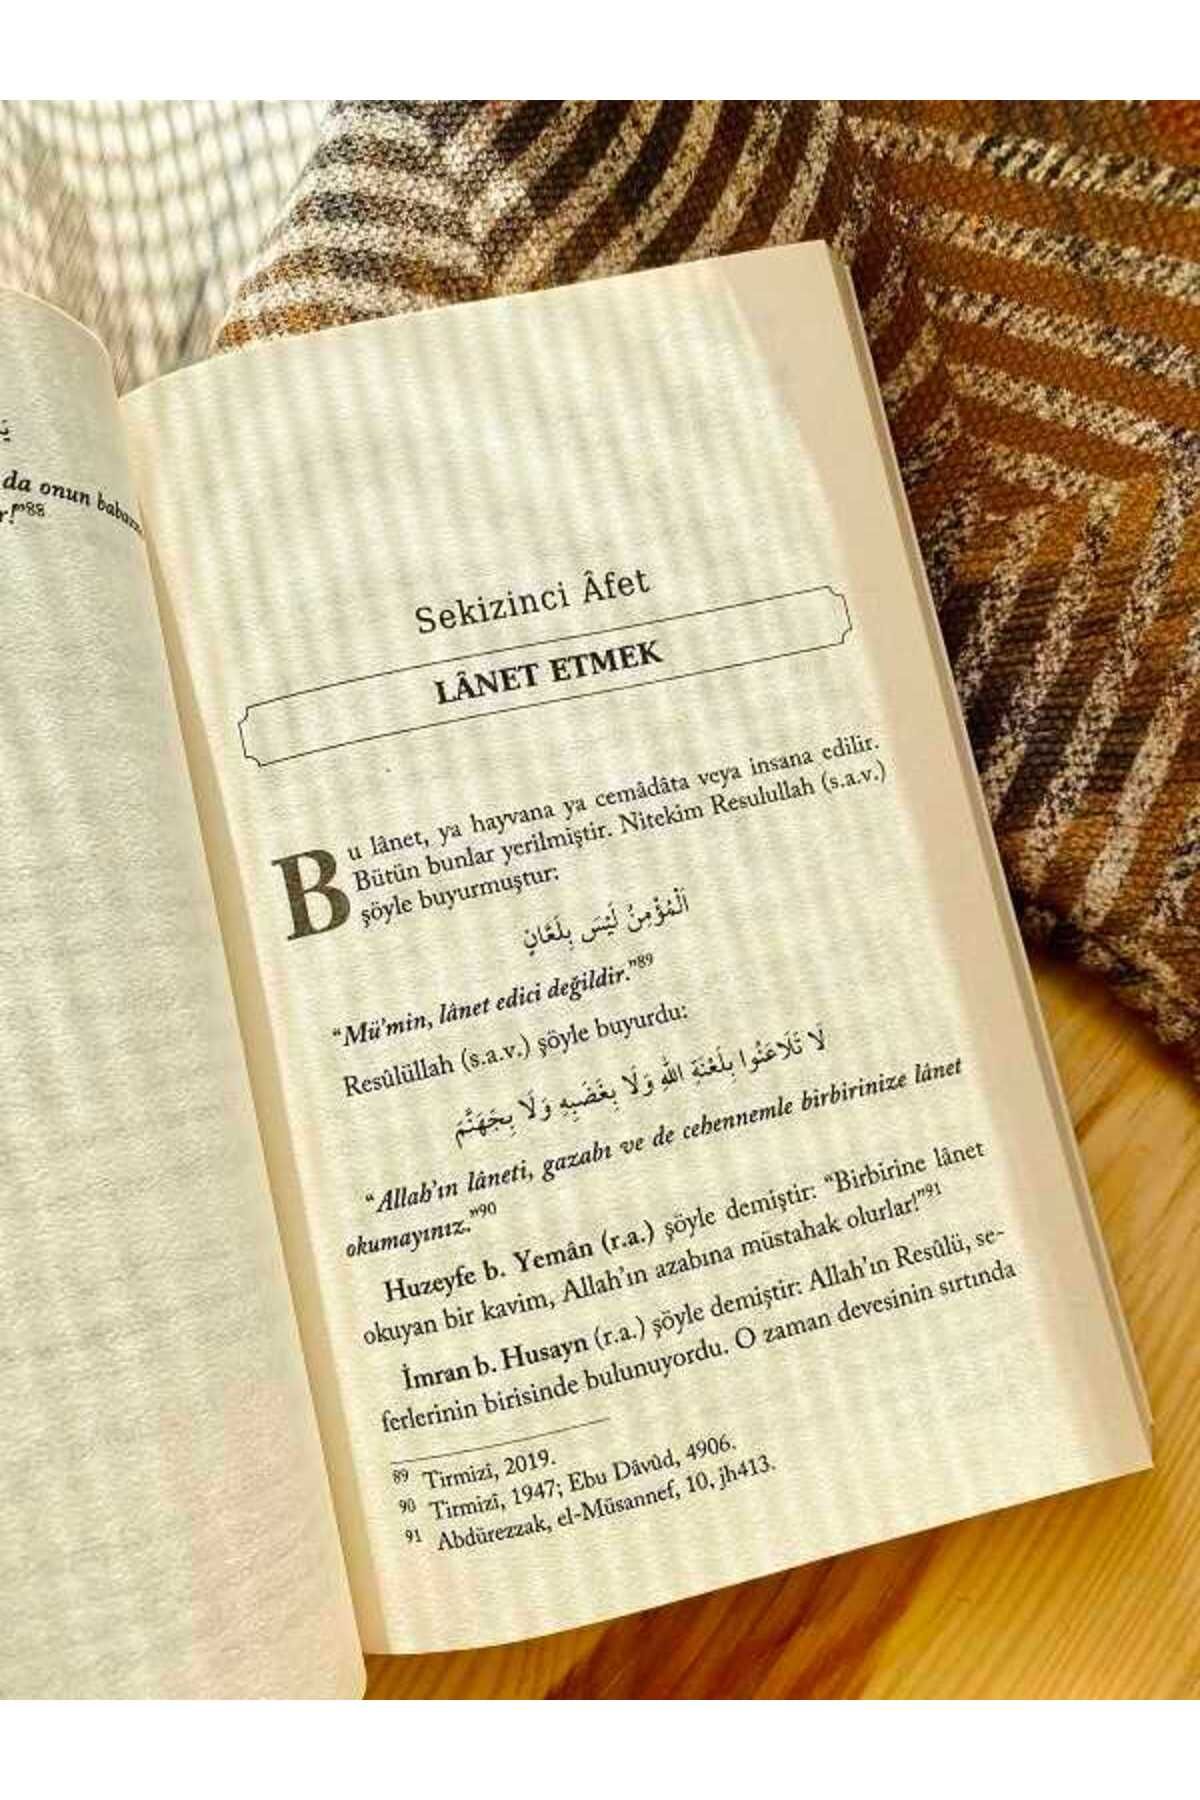 da onun
!"88
Sekizinci Âfet
LÂNET ETMEK
Bu lânet, ya hayvana ya cemâdâta veya insana edilir.
Bütün bunlar yerilmiştir. Nitekim Resulullah (s.a.v.)
şöyle buyurmuştur:
اَلْمُؤْمِنُ لَيْسَ بِلَعَّانٍ
"Mü'min, lânet edici değildir."89
Resûlüllah (s.a.v.) şöyle buyurdu:
لَا تَلَاعَنُوا بِلَعْنَةِ اللهِ وَلَا بِغَضَبِهِ وَلَا بِجَهَنَّمَ
"Allah'ın lâneti, gazabı ve de cehennemle birbirinize lânet
okumayınız."90
Huzeyfe b. Yemân (r.a.) şöyle demiştir: "Birbirine lânet
okuyan bir kavim, Allah'ın azabına müstahak olurlar!"91
İmran b. Husayn (r.a.) şöyle demiştir: Allah'ın Resûlü, se-
ferlerinin birisinde bulunuyordu. O zaman devesinin sırtında
89 Tirmizî, 2019.
90 Tirmizî, 1947; Ebu Dâvûd, 4906.
91 Abdürezzak, el-Müsannef, 10, jh413.